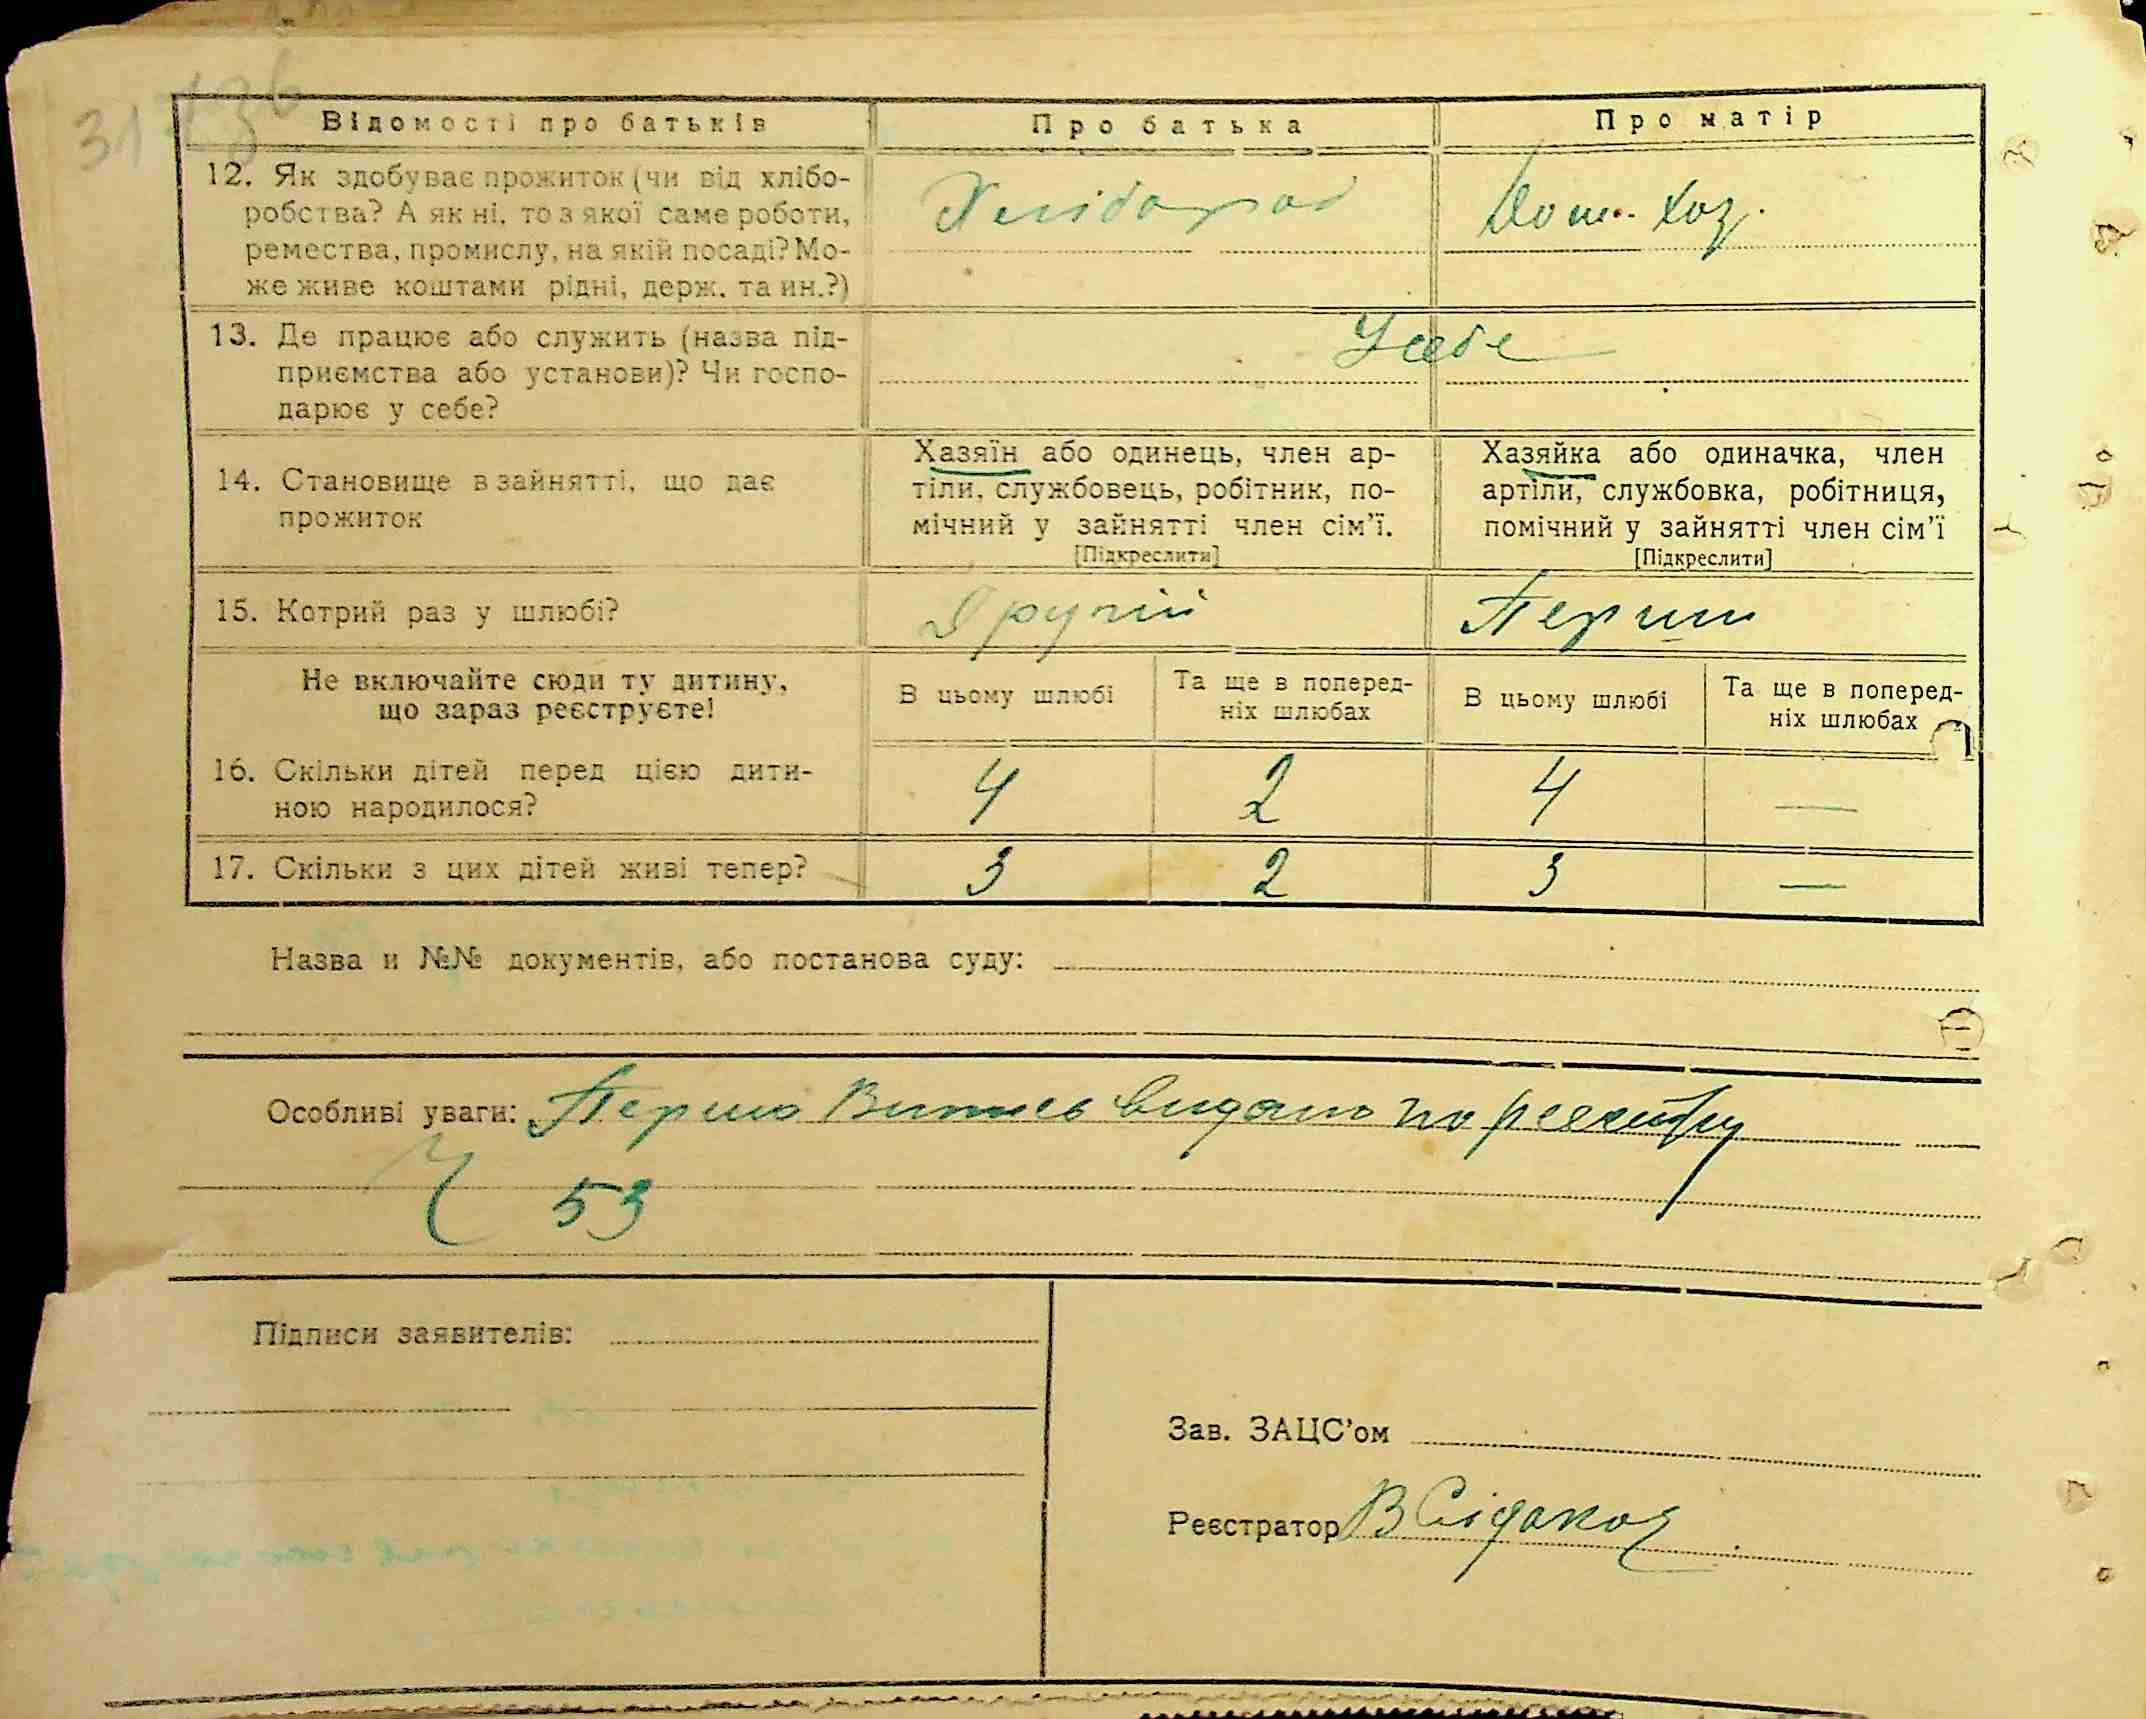 Відомості про батьків
Про батька
Про матір
12. Як здобуває прожиток (чи від хлібо-
робства? А як ні, то з якої саме роботи,
ремества, промислу, на якій посаді? Мо-
же живе коштами рідні, держ. та ин.?)
Хлібороб
Дом. хоз.
13. Де працює або служить (назва під-
приємства або установи)? Чи госпо-
дарює у себе?
У себе
14. Становище в зайнятті, що дає
прожиток
Хазяїн або одинець, член ар-
тіли, службовець, робітник, по-
мічний у зайнятті член сім’ї.
[Підкреслити]
Хазяйка або одиначка, член
артіли, службовка, робітниця,
помічний у зайнятті член сім’ї
[Підкреслити]
15. Котрий раз у шлюбі?
Другій
Перши
Не включайте сюди ту дитину,
що зараз реєструєте!
В цьому шлюбі
Та ще в поперед-
ніх шлюбах
В цьому шлюбі
Та ще в поперед-
ніх шлюбах
16. Скільки дітей перед цією дити-
ною народилося?
4
2
4
—
17. Скільки з цих дітей живі тепер?
3
2
3
—
Назва и №№ документів, або постанова суду:
Особливі уваги: Перша Випись видано по реєстру
Ч 53
Підписи заявителів:
Зав. ЗАЦС’ом
Реєстратор В Сідаков